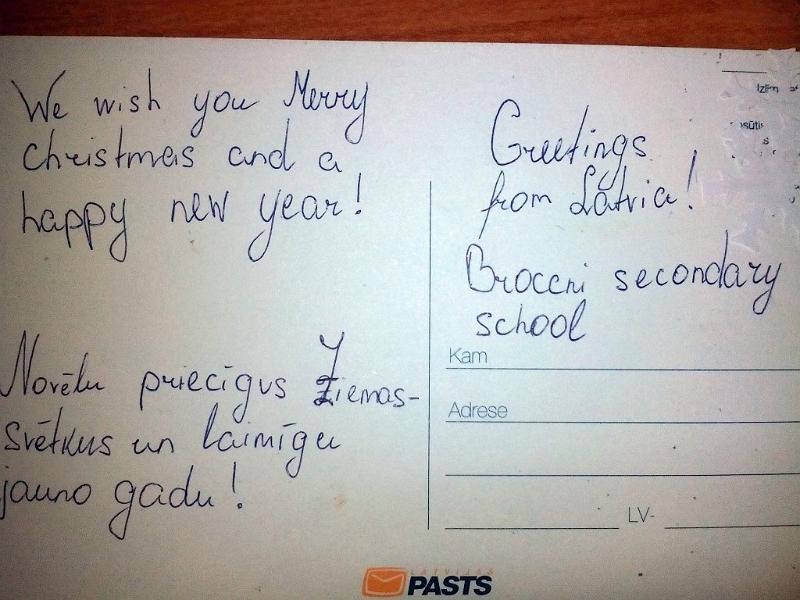 We wish you Merry
Christmas and a
happy new year!
Novēlu priecīgus Ziemas-
svētkus un laimīgu
jauno gadu!
Greetings
from Latvia!
Broceni secondary
school
Kam
Adrese
LV-
LATVIJAS
PASTS